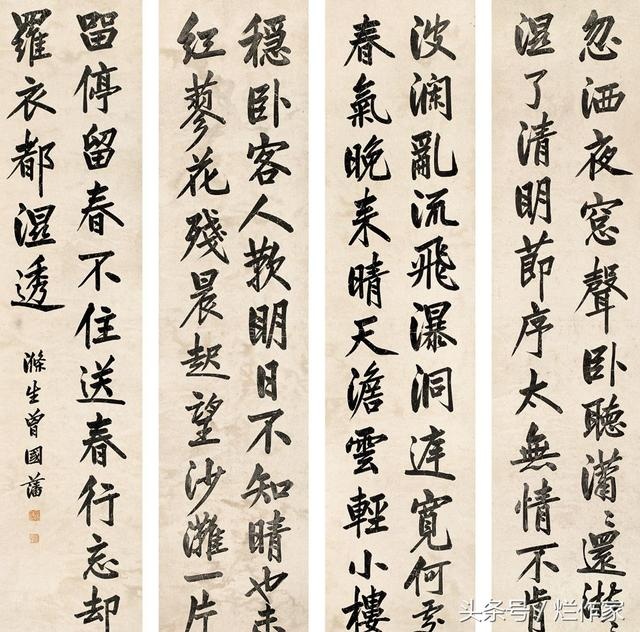 忽洒夜窓聲卧聽瀟〻還淅
湿了清明節序太無情不肯
波瀾亂流飛瀑洞達寬何處
春氣晚来晴天澹雲輕小樓
穩卧客人歎明日不知晴也未
红蓼花殘晨起望沙灘一片
留停留春不住送春行忘却
羅衣都湿透
滌生曾國藩
头条号 / 烂作家